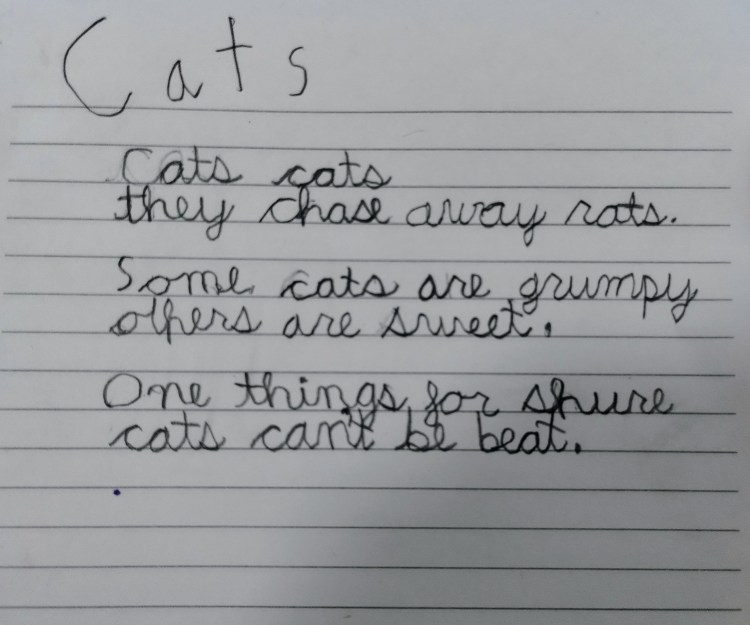 Cats
Cats cats
they chase away rats.
Some cats are grumpy
others are sweet.
One things for shure
cats can't be beat.